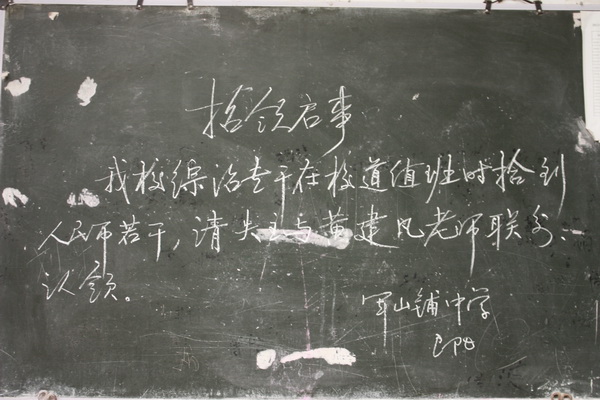 拾领启事
我校综治专干在校道值班时拾到
人民币若干，请失主与黄建凡老师联系
认领。
军山铺中学
即日